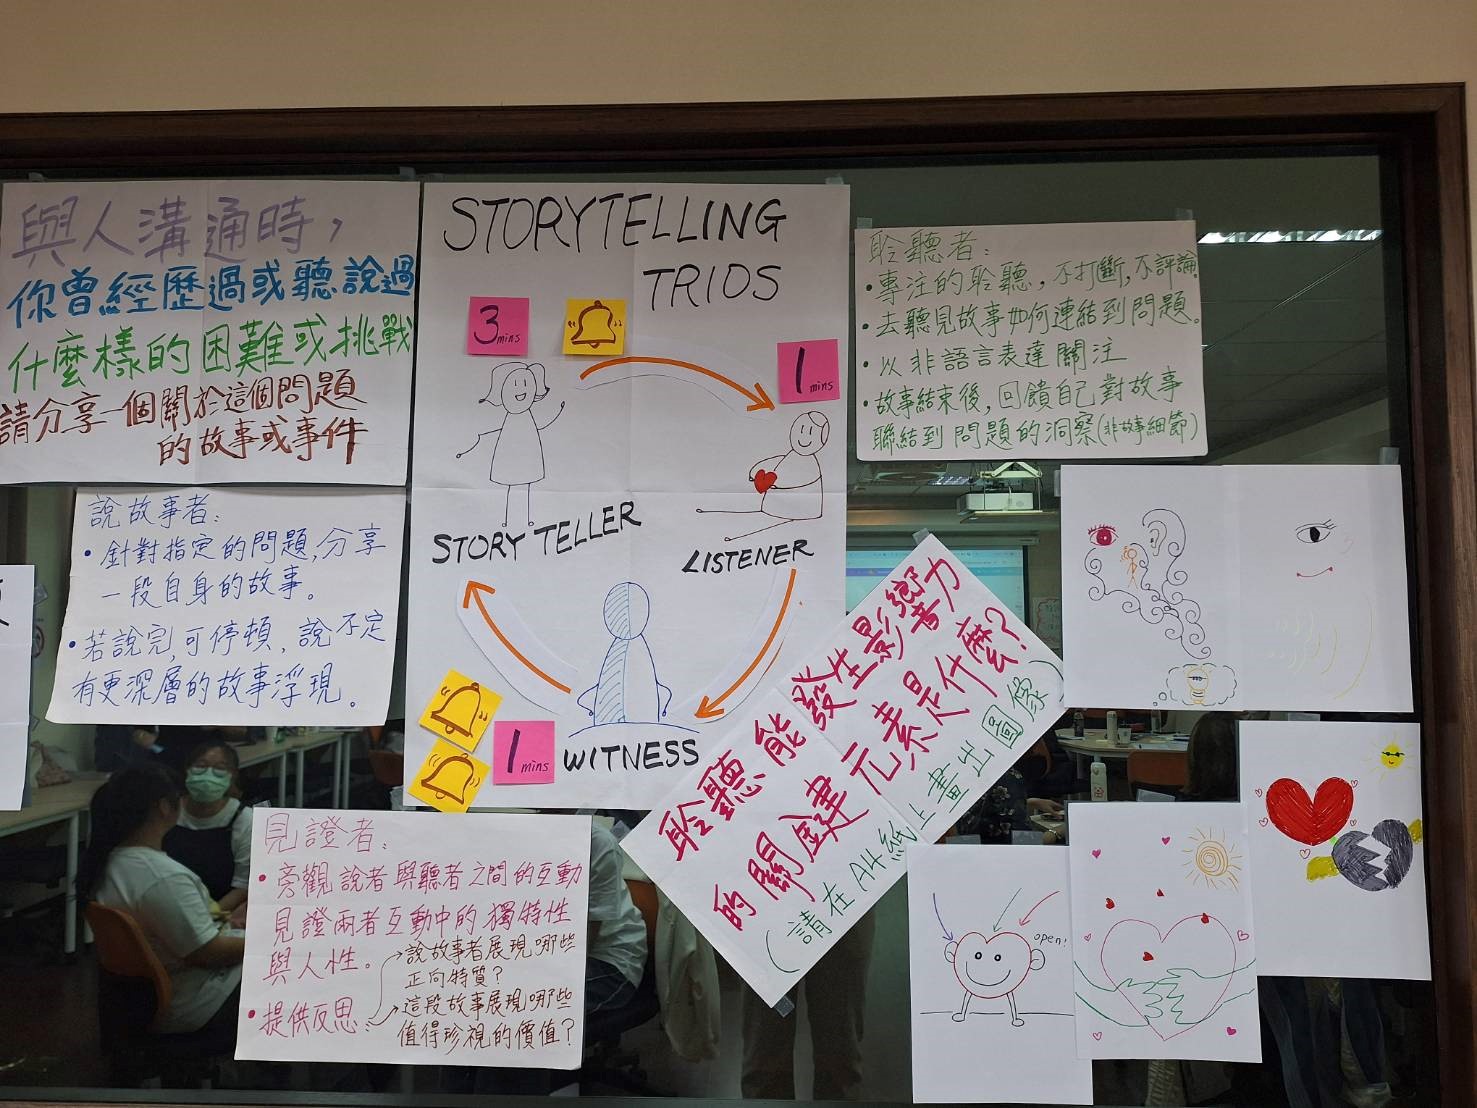 與人溝通時，
你曾經歷過或聽說過
什麼樣的困難或挑戰
請分享一個關於這個問題
的故事或事件
說故事者：
• 針對指定的問題，分享
一段自身的故事。
• 若說完，可停頓，說不定
有更深層的故事浮現。
STORYTELLING
TRIOS
3 mins
1 mins
STORY TELLER
LISTENER
1 mins
WITNESS
聆聽者：
• 專注的聆聽，不打斷，不評論。
• 去聽見故事如何連結到問題。
• 以非語言表達關注
• 故事結束後，回饋自己對故事
聯結到問題的洞察(非故事細節)
見證者：
• 旁觀說者與聽者之間的互動
見證兩者互動中的獨特性
與人性。
→說故事者展現哪些
正向特質？
• 提供反思
→這段故事展現哪些
值得珍視的價值？
聆聽能發生影響力
的關鍵元素是什麼？
(請在A4紙上畫出圖像)
open!